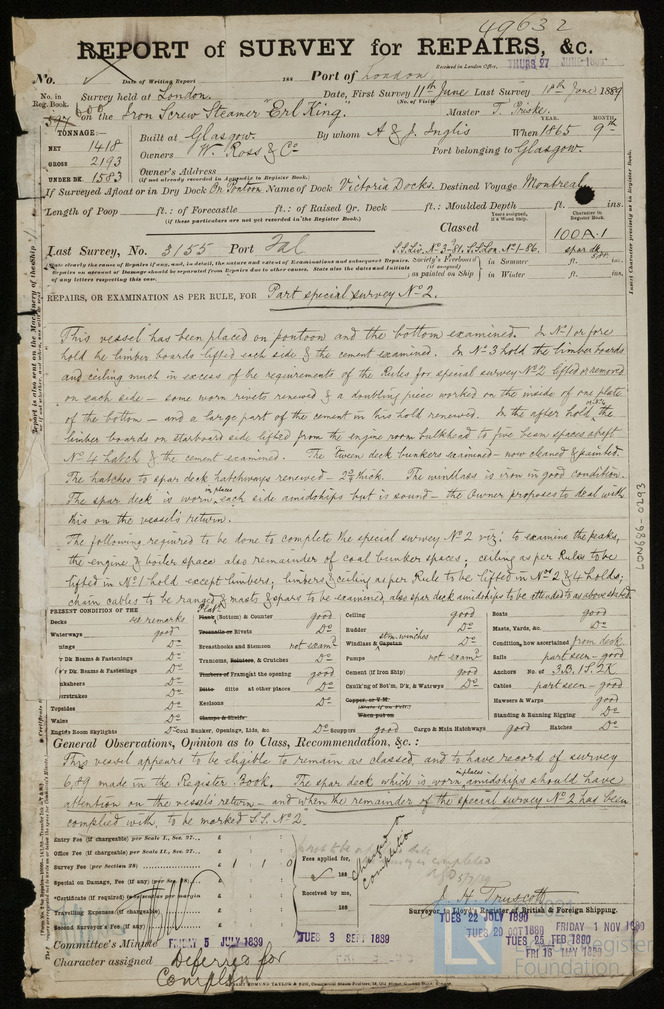 49632
REPORT of SURVEY for REPAIRS, &c.
Received in London Office, THURS 27 JUNE 1889
No. Date of Writing Report 188 Port of London
No. in Reg. Book. Survey held at London. Date, First Survey 11th June Last Survey 18th June 1889
(No. of Visits
600
597 on the Iron Screw Steamer "Erl King". Master T. Priske.
TONNAGE:— YEAR. MONTH.
NET 1418 Built at Glasgow. By whom A & J. Inglis When 1865 9th
GROSS 2193 Owners W. Ross & Co Port belonging to Glasgow.
UNDER DK 1583 Owner's Address
(if not already recorded in Appendix to Register Book.)
If Surveyed Afloat or in Dry Dock On Pontoon Name of Dock Victoria Docks. Destined Voyage Montreal
Length of Poop ft.: of Forecastle ft.: of Raised Qr. Deck ft.: Moulded Depth ft. ins.
(if these particulars are not yet recorded in the Register Book.)
Years assigned, if a Wood Ship. Character in Register Book.
Classed 100 A.1
Last Survey, No. 3155 Port Fal S.S.Liv. No.3-81. S.S.Lon. No.1-86. spar dk. 5,88.
Society's Freeboard (if assigned) as painted on Ship in Summer ft. ins.
in Winter ft. ins.
REPAIRS, OR EXAMINATION AS PER RULE, FOR Part special survey No 2.
This vessel has been placed on pontoon and the bottom examined. In No 1 or fore
hold the limber boards lifted each side & the cement examined. In No 3 hold the limber boards
and ceiling much in excess of the requirements of the Rules for special survey No 2 lifted or removed
on each side – some worn rivets renewed & a doubling piece worked on the inside of one plate
of the bottom – and a large part of the cement in this hold renewed. In the after hold, the
limber boards on starboard side lifted from the engine room bulkhead to five beam spaces abaft
No 4 hatch & the cement examined. The tween deck bunkers examined – now cleaned & painted.
The hatches to spar deck hatchways renewed – 2¾ thick. The windlass is iron in good condition.
The spar deck is worn in places each side amidships but is sound – the Owner proposes to deal with
this on the vessel's return.
The following required to be done to complete the special survey No 2 viz: to examine the peaks,
the engine & boiler space also remainder of coal bunker spaces; ceiling as per Rules to be
lifted in No 1 hold except limbers; limbers & ceiling as per Rule to be lifted in Nos 2 & 4 holds;
chain cables to be ranged & masts & spars to be examined, also spar deck amidships to be attended to as above stated
PRESENT CONDITION OF THE
Decks see remarks
Waterways good
Dk Beams & Fastenings Do
Dk Beams & Fastenings Do
Topsides Do
Wales Do
Engine Room Skylights Do
Plate
Plank (Bottom) & Counter good
Treenails or Rivets Do
Breasthooks and Stemson not examd
Transoms, Pointers, & Crutches Do
Timbers of Frame at the opening good
Ditto ditto at other places Do
Keelsons Do
Clamps & Shelfs
Coal Bunker, Openings, Lids, &c Do
Scuppers good
Ceiling good
Rudder Do
steam winches
Windlass & Capstan Do
Pumps not examd
Cement (if Iron Ship) good
Caulk'ng of Bot'm, D'k, & Watrwys Do
Copper, or Y.M.
(State if on Felt.)
When put on
Cargo & Main Hatchways good
Boats good
Masts, Yards, &c. Do
Condition, how ascertained from deck
Sails part seen – good
Anchors No. of 3.B.1S.2K
Cables part seen – good
Hawsers & Warps good
Standing & Running Rigging Do
Hatches Do
General Observations, Opinion as to Class, Recommendation, &c.:
This vessel appears to be eligible to remain as classed, and to have record of survey
6,89 made in the Register Book. The spar deck which is worn in places amidships should have
attention on the vessels return – and when the remainder of the special survey No 2 has been
complied with, to be marked S.S. No 2.
Entry Fee (if chargeable) per Scale I., Sec. 27... £ : :
Office Fee (if chargeable) per Scale II., Sec. 27... £ : :
Survey Fee (per Section 28) £ 1 : 1 : 0
Special on Damage, Fee (if any) (per Sec. 28) £ : :
*Certificate (if required)
Travelling Expenses (if chargeable) £ : :
Second Surveyor's Fee (if any) £ : :
Fees applied for, 188
Received by me, 188
J. H. Truscott
Surveyor to Lloyd's Register of British & Foreign Shipping.
TUES 22 JULY 1890
TUES 25 FEB 1890
FRIDAY 1 NOV 1889
FRI 16 MAY 1890
Committee's Minute FRIDAY 5 JULY 1889 TUES 3 SEPT 1889
Character assigned Deferred for
Completn
LON686-0293
Foundation